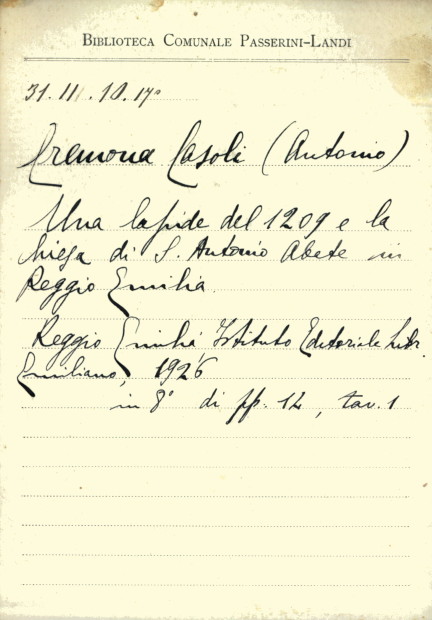 BIBLIOTECA COMUNALE PASSERINI-LANDI
31. III. 10. 17º
Cremona Casoli (Antonio)
Una lapide del 1209 e la
chiesa di S. Antonio Abate in
Reggio Emilia.
Reggio Emilia Istituto Editoriale Libr.
Emiliano, 1926
in 8º di pp. 12, tav. 1